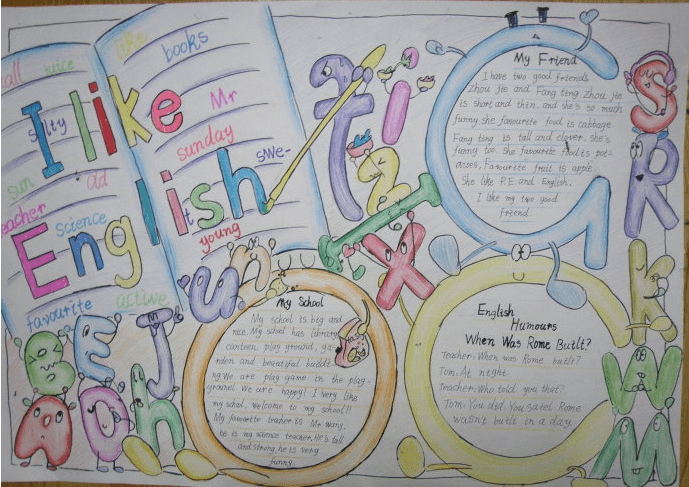 I like
English
tall
juice
like
books
salty
Mr
sunday
sun
ad
swe-
teacher
science
it
young
favourite
active
My Friend
I have two good friends
Zhou jie and Fang ting Zhou jie
is short and thin. and she's so much
funny she favourite food is cabbage.
Fang ting is tall and clever. she's
funny too. She favourite food is pot-
atoes, Favourite fruit is apple
She like P.E. and English.
I like my two good
friend.
My School
My school is big and
nice. My school has library
canteen play ground, ga-
rden and beautiful buildi-
ng. We are play game in the play-
ground. We are happy! I very like
my school. Welcome to my school!!
My favourite teacher is Mr Wang,
he is my science teacher. He's tall
and strong, he is very
funny.
English
Humours
When Was Rome Built?
Teacher: When was Rome built?
Tom: At night
Teacher: Who told you that?
Tom: You did. You saied Rome
wasn't built in a day
t i z
I x
G
S
R
K
W
M
u n
B E J
A O h